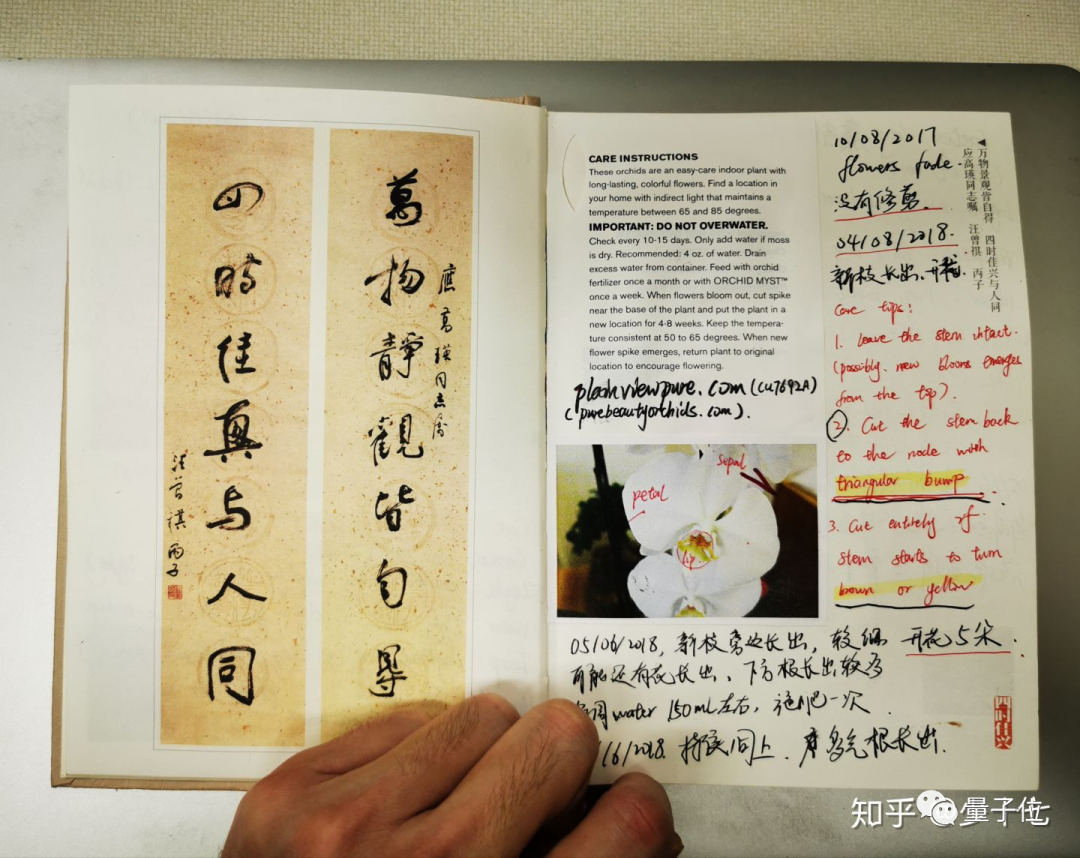 萬物靜觀皆自得
應高瑛同志属
四時佳興与人同
汪曾祺 丙子
CARE INSTRUCTIONS
These orchids are an easy-care indoor plant with
long-lasting, colorful flowers. Find a location in
your home with indirect light that maintains a
temperature between 65 and 85 degrees.
IMPORTANT: DO NOT OVERWATER.
Check every 10-15 days. Only add water if moss
is dry. Recommended: 4 oz. of water. Drain
excess water from container. Feed with orchid
fertilizer once a month or with ORCHID MYST™
once a week. When flowers bloom out, cut spike
near the base of the plant and put the plant in a
new location for 4-8 weeks. Keep the tempera-
ture consistent at 50 to 65 degrees. When new
flower spike emerges, return plant to original
location to encourage flowering.
(CU7692A)
(purebeautyorchids.com).
sepal
petal
lip
10/08/2017
flowers fade.
没有修剪.
04/08/2018.
新枝长出、开花.
Care tips:
1. Leave the stem intact.
(possibly. new blooms emerges
from the top).
2. Cut the stem back
to the node with
triangular bump
3. Cut entirely if
stem starts to turn
brown or yellow
◀万物景观皆自得 四时佳兴与人同
应高瑛同志嘱 汪曾祺 丙子
05/06/2018, 新枝旁边长出, 较细 开花5朵.
可能还有花长出、下方根长出较多
water 150ml左右, 施肥一次
/6/2018. 同上. 根长出.
四时佳兴
知乎 量子位